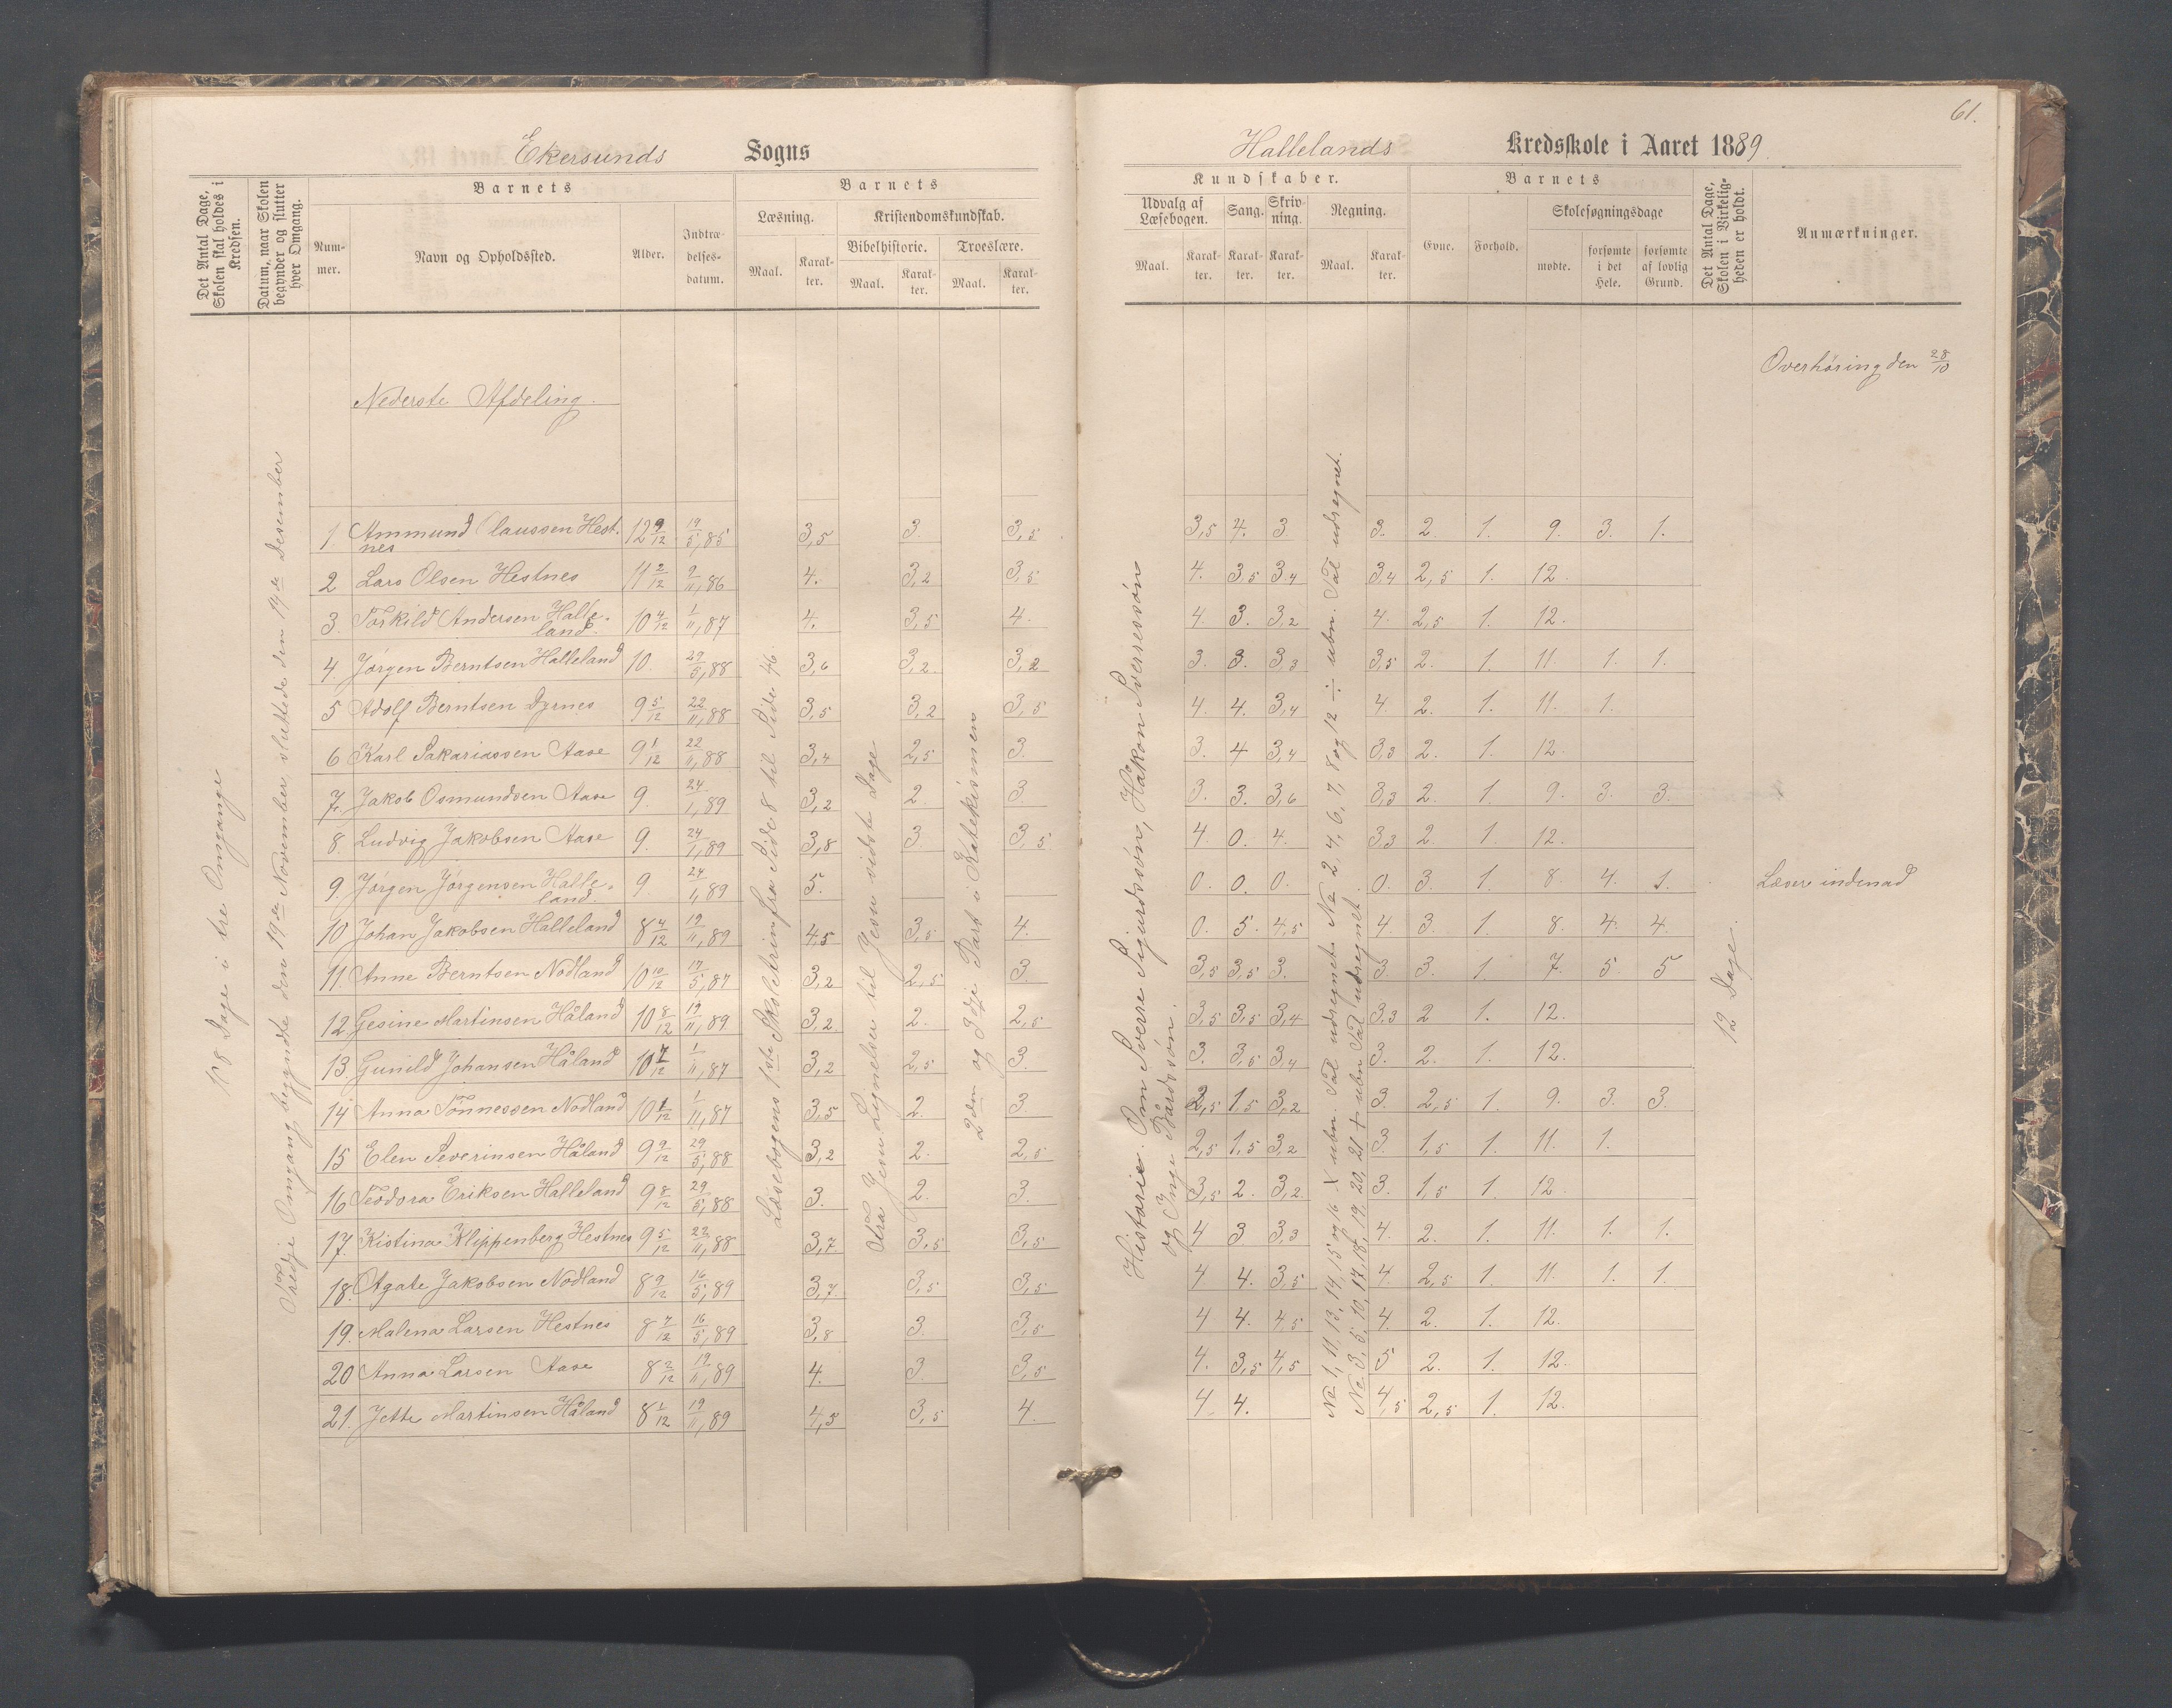 61.
Ekersunds Sogns
Hallelands Kredsskole i Aaret 1889.
Det Antal Dage, Skolen skal holdes i Kredsen.
Datum, naar Skolen begynder og slutter hver Omgang.
Barnets
Nummer.
Navn og Opholdssted.
Alder.
Indtrædelsesdatum.
Barnets
Læsning.
Maal.
Karakter.
Kristendomskundskab.
Bibelhistorie.
Maal.
Karakter.
Troeslære.
Maal.
Karakter.
Kundskaber.
Udvalg af Læsebogen.
Maal.
Karakter.
Sang.
Karakter.
Skrivning.
Karakter.
Regning.
Maal.
Karakter.
Barnets
Evne.
Forhold.
Skolesøgningsdage
mødte.
forsømte i det Hele.
forsømte af lovlig Grund.
Det Antal Dage, Skolen i Virkeligheden er holdt.
Anmærkninger.
Overhöring den 28/10
Nederste Afdeling.
108 Dage i tre Omgange
Tredje Omgang begyndte den 19de November sluttede den 14de Desember
Læsebogens 1ste Skoletrin fra Side 8 til Side 46.
Jesu Lignelser til Jesu sidste Dage
2den og 3dje Part i Katekismen
Historie. Om Sverre Sigurdssøn, Håkon Sverressøn
og Inge Bårdssøn.
No 1, 11, 13, 14, 15 og 16 X ubn. Tal udregnet. No 2, 4, 6, 7, 8 og 12 ÷ ubn. Tal udregnet.
No. 3, 5, 10, 17, 18, 19, 20, 21 + ubn Tal udregnet.
12 Dage.
1. Ammund Claussen Hestnes 12 9/12 19/5,85 3,5 3. 3,5 3,5 4. 3 3. 2. 1. 9. 3. 1.
2 Lars Olsen Hestnes 11 2/12 9/11,86 4. 3,2 3,5 4. 3,5 3,4 3,4 2,5 1. 12.
3. Torkild Andersen Halleland. 10 4/12 1/11,87 4. 3,5 4. 4. 3. 3,2 4. 2,5 1. 12.
4. Jørgen Berntsen Halleland 10. 29/5,88 3,6 3,2. 3,2 3. 3. 3,3 3,5 2. 1. 11. 1. 1.
5 Adolf Berntsen Dyrnes 9 5/12 22/11,88 3,5 3,2 3,5 4. 4. 3,4 4. 2. 1. 11. 1.
6 Karl Sakariassen Aase 9 1/12 22/11,88 3,4 2,5 3. 3. 4 3,4 3,3 2. 1. 12.
7. Jakob Osmundsen Aase 9. 24/1,89 3,2 2. 3. 3. 3. 3,6 3,3 2. 1. 9. 3. 3.
8. Ludvig Jakobsen Aase 9. 24/1,89 3,8 3. 3,5 4 0. 4. 3,3 2. 1. 12.
9. Jörgen Jörgensen Halleland. 9. 24/1,89 5. 0. 0. 0. 0. 3. 1. 8. 4. 1. Læser indenad
10 Johan Jakobsen Halleland 8 4/12 19/11,89 4,5 3,5 4. 0. 5. 4,5 4. 3. 1. 8. 4. 4.
11. Anne Berntsen Nodland 10 10/12 17/5,87 3,2 2,5 3. 3,5 3,5 3. 3. 3. 1. 7. 5. 5
12. Gesine Martinsen Håland 10 8/12 19/11,89 3,2 2. 2,5 3,5 3,5 3,4 3,3 2 1. 12.
13. Gunild Johansen Håland 10 7/12 1/11,87 3,2 2,5 3. 3. 3,5 3,4 3. 2. 1. 12.
14 Anna Tönnessen Nodland 10 1/12 1/11,87 3,5 2. 3. 2,5 1,5 3,2 3. 2,5 1. 9. 3. 3.
15 Elen Severinsen Håland 9 9/12 29/5,88 3,2 2. 2,5 2,5 1,5 3,2 3. 1,5 1. 11. 1.
16 Teodora Eriksen Halleland 9 8/12 29/5,88 3. 2. 3. 3,5 2. 3,2. 3. 1,5 1. 12.
17. Kistina Klippenberg Hestnes 9 5/12 22/11,88 3,7 3,5 3,5 4 3 3,3 4. 2. 1. 11. 1. 1.
18. Agate Jakobsen Nodland 8 9/12 16/5,89 3,7. 3,5 3,5 4 4. 3,5 4. 2,5 1. 11. 1. 1.
19. Malena Larsen Hestnes 8 7/12 16/5,89 3,8 3. 3,5 4 4. 4,5 4. 2. 1. 12.
20 Anna Larsen Aase 8 2/12 19/11,89 4. 3. 3,5 4. 3,5 4,5 5 2. 1. 12.
21. Jette Martinsen Håland 8 1/12 19/11,89 4,5 3,5 4. 4. 4. 4,5 2,5 1. 12.